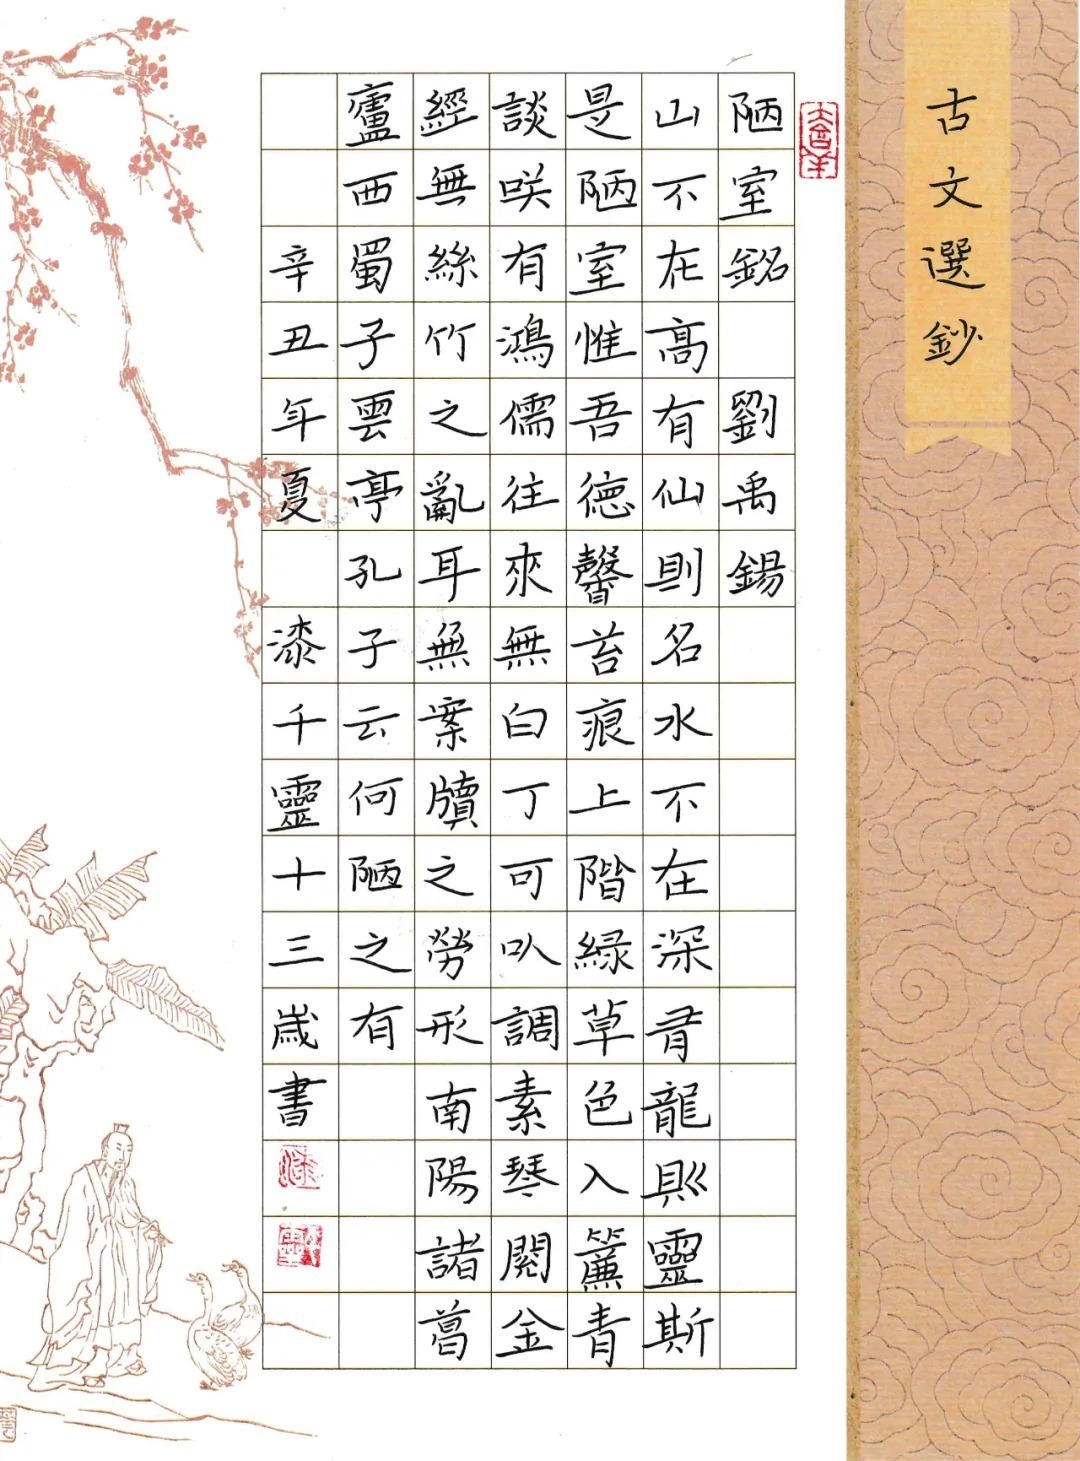 古文選鈔
陋室銘 劉禹錫
山不在高有仙則名水不在深有龍則靈斯
是陋室惟吾德馨苔痕上階緑草色入簾青
談咲有鴻儒往來無白丁可㕥調素琴閱金
經無絲竹之亂耳無案牘之勞形南陽諸葛
廬西蜀子雲亭孔子云何陋之有
辛丑年夏 漆千靈十三歲書